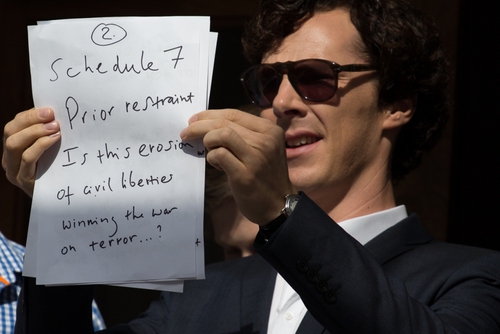 2.
Schedule 7
Prior restraint
Is this erosion
of civil liberties
winning the war
on terror...?